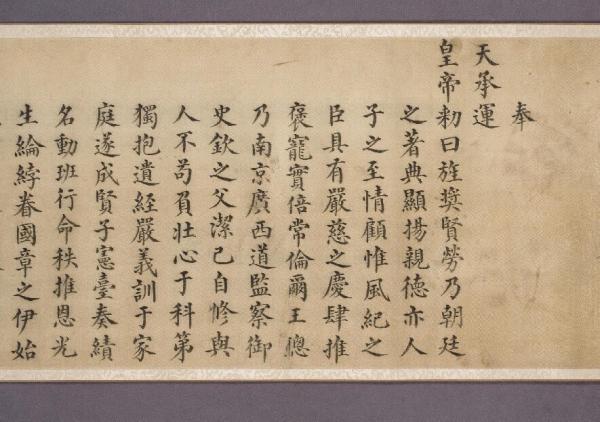 奉
天承運
皇帝勑曰旌獎賢勞乃朝廷
之著典顯揚親德亦人
子之至情顧惟風紀之
臣具有嚴慈之慶肆推
褒寵實倍常倫爾王聰
乃南京廣西道監察御
史欽之父潔己自修與
人不苟負壯心于科第
獨抱遺經嚴義訓于家
庭遂成賢子憲臺奏績
名動班行命秩推恩光
生綸綍眷國章之伊始